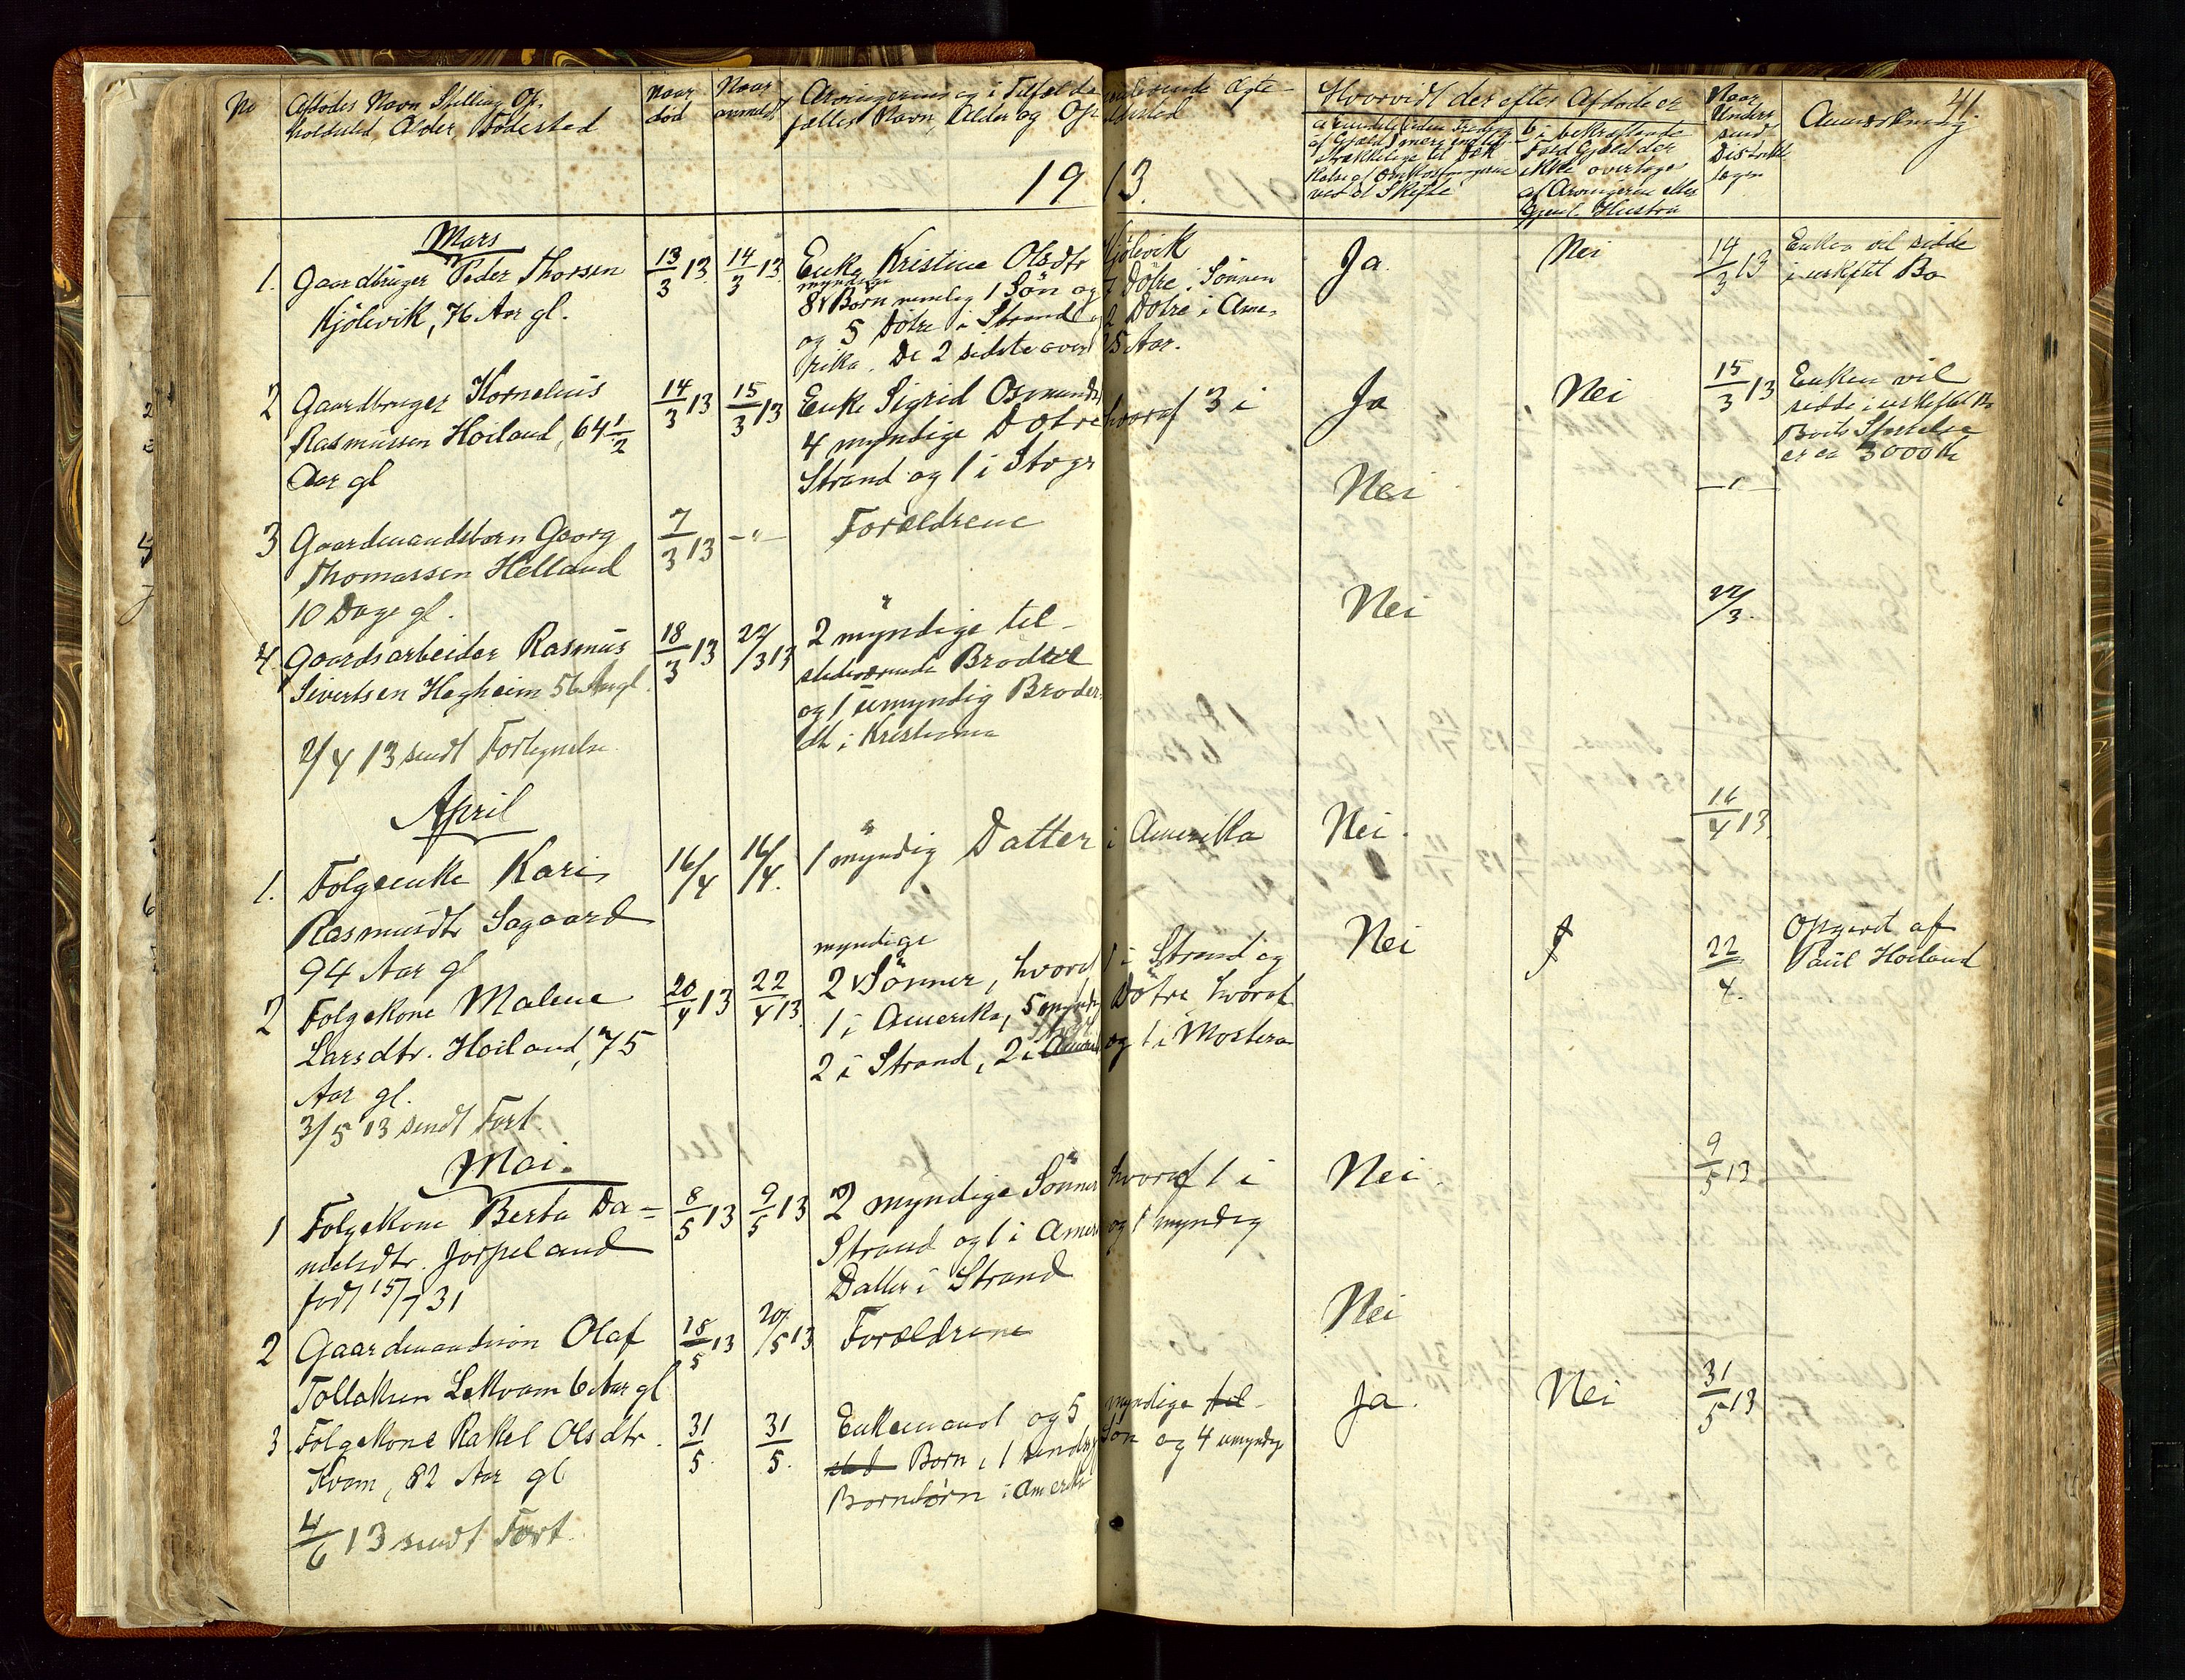 41.
No
Afdødes Navn Stilling Op-
holdssted, Alder, Fødested
Naar
død
Naar
anmeldt
Arvingernes og i Tilfælde
fælles Navn, Alder og Op
levende Ægte-
holdssted
Hvorvidt der efter Afdøde er
ved et Skifte
b i bekræftende
Fald Gjæld der
ikke overtages
af Arvingerne eller
Gjenl. Hustru
Naar
Under
sendt
Distrikts
Anmærkning
1913.
Mars
1. Gaardbruger Peder Thorsen
Kjölevik, 76 Aar gl.
13/3 13 14/3 13
Enke Kristine Olsdtr Kjölevik
myndige
8 v Börn nemlig 1 Sön og 7 Døtre. Sönnen
og 5 Døtre i Strand og 2 Døtre i Ame-
rika. De 2 sidste over 25 Aar.
Ja. Nei 14/3 13
Enken vil sidde
i uskiftet Bo
2 Gaardbruger Kornelius
Rasmussen Hoiland, 64 1/2
Aar gl
14/3 13 15/3 13
Enke Sigrid Osmundsd
4 myndige Døtre hvoraf 3 i
Strand og 1 i
Ja Nei 15/3 13
Enken vil
sidde i uskiftet Bo
Boets Størrelse
er ca 3000 Kr
3 Gaardmandsbarn Georg
Thomassen Helland
10 Dage gl.
7/3 13 -"-
Forældrene
Nei -"-
4 Gaardsarbeider Rasmus
Sivertsen Hegheim 56 Aar gl.
18/3 13 22/3 13
2 myndige til-
stedeværende Brødre
og 1 umyndig Broder-
dt i Kristiania
Nei 22/3.
2/4 13 sendt Fortegnelse
April
1. Folgeenke Kari
Rasmusdtr Sagaard
94 Aar gl
16/4 16/4.
1 myndig Datter i Amerika
Nei. 16/4 13
2 Folgekone Malene
Larsdtr. Hoiland, 75
Aar gl.
20/4 13 22/4 13
myndige
2 v Sönner, hvoraf 1 i Strand og
1 i Amerika, 5 myndige Døtre hvoraf
2 i Strand, 2 i og 1 i Mosterø
Nei 22/4.
Opgivet af
Paul Hoiland
3/5 13 sendt Fort.
Mai.
1 Folgekone Berta Da-
nielsdtr. Jorpeland
født 15/7 31
8/5 13 9/5 13
2 myndige Sönner hvoraf 1 i
Strand og 1 i Amer og 1 myndig
Datter i Strand
Nei. 9/5 13
2 Gaardmandssön Olaf
Tollaksen Lekvam 6 Aar gl
18/5 13 20/5 13
Forældrene
Nei
3 Folgekone Rakel Olsdtr.
Kvam, 82 Aar gl
31/5. 31/5.
Enkemand og 5 myndige til-
sted Born, 1 Sön og 4 umyndige
Bornebørn i Amerika
Ja. Nei 31/5 13
4/6 13 sendt Fort.